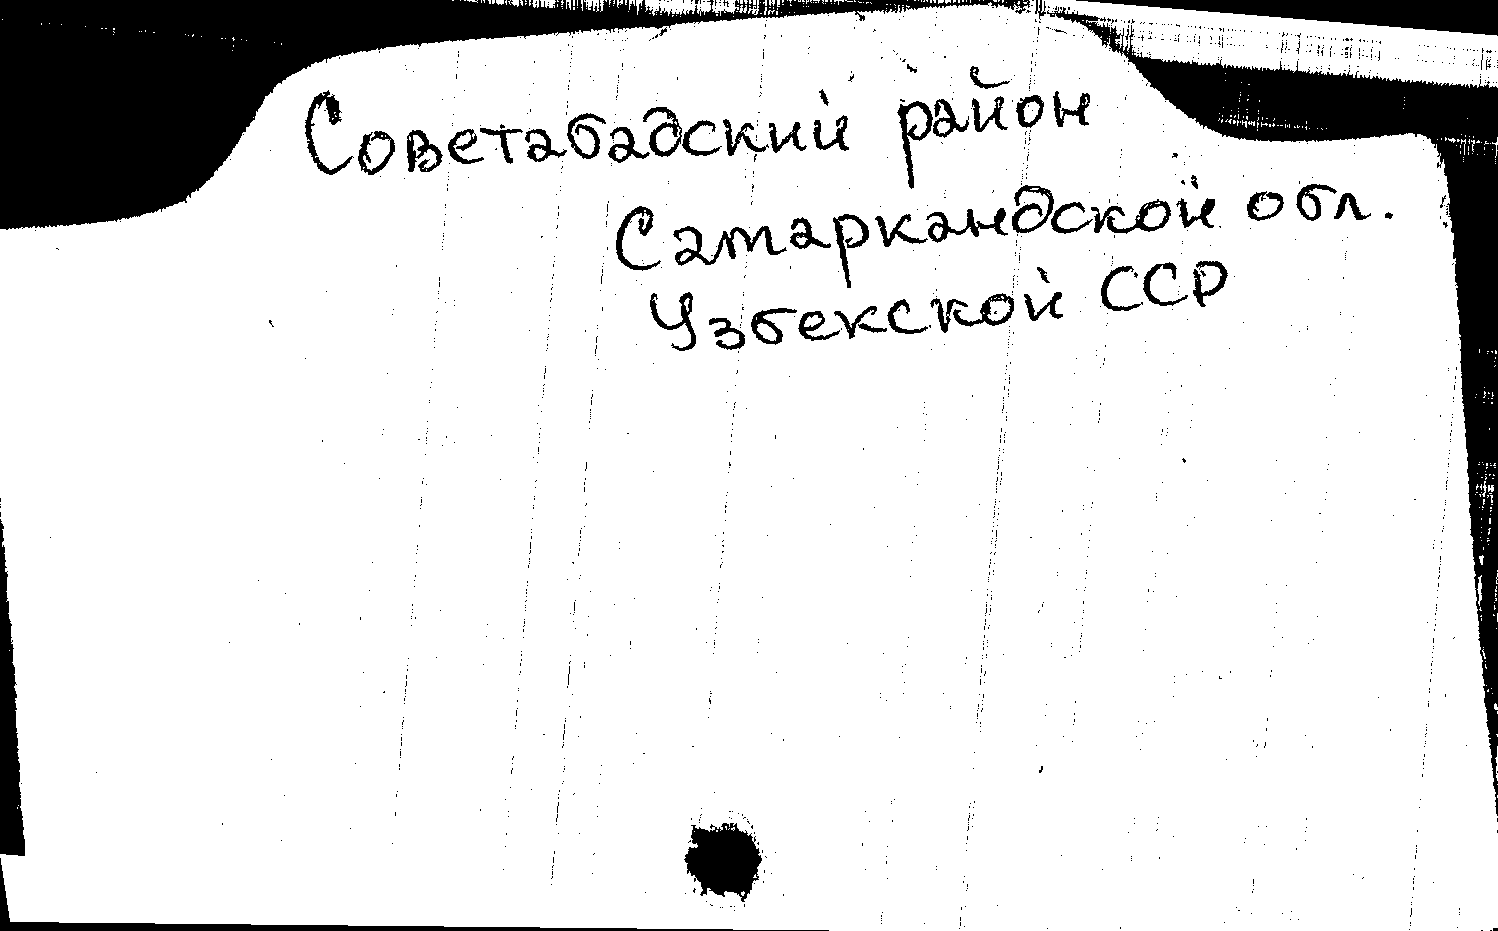 Советабадский район
Самаркандской обл.
Узбекской ССР